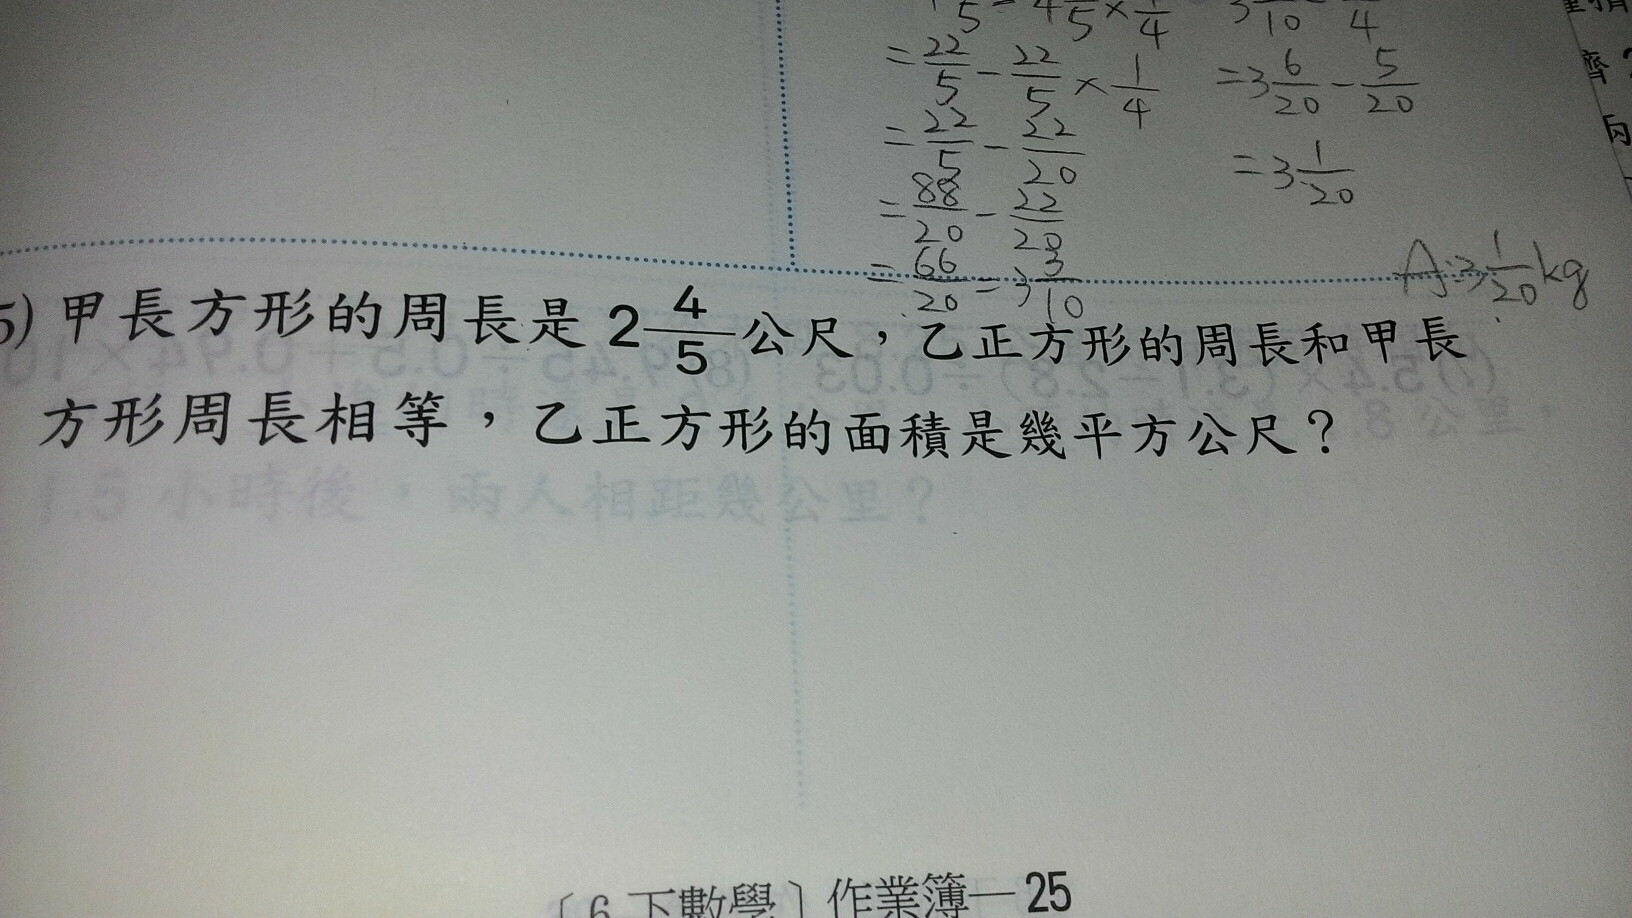 = 22/5 - 22/5 × 1/4
= 3 6/20 - 5/20
= 22/5 - 22/20
= 3 1/20
= 88/20 - 22/20
= 66/20 = 3 3/10
A: 3 1/20 kg
5) 甲長方形的周長是 2 4/5 公尺，乙正方形的周長和甲長
方形周長相等，乙正方形的面積是幾平方公尺？
1.5 小時後，兩人相距幾公里？
〔6 下數學〕作業簿—25